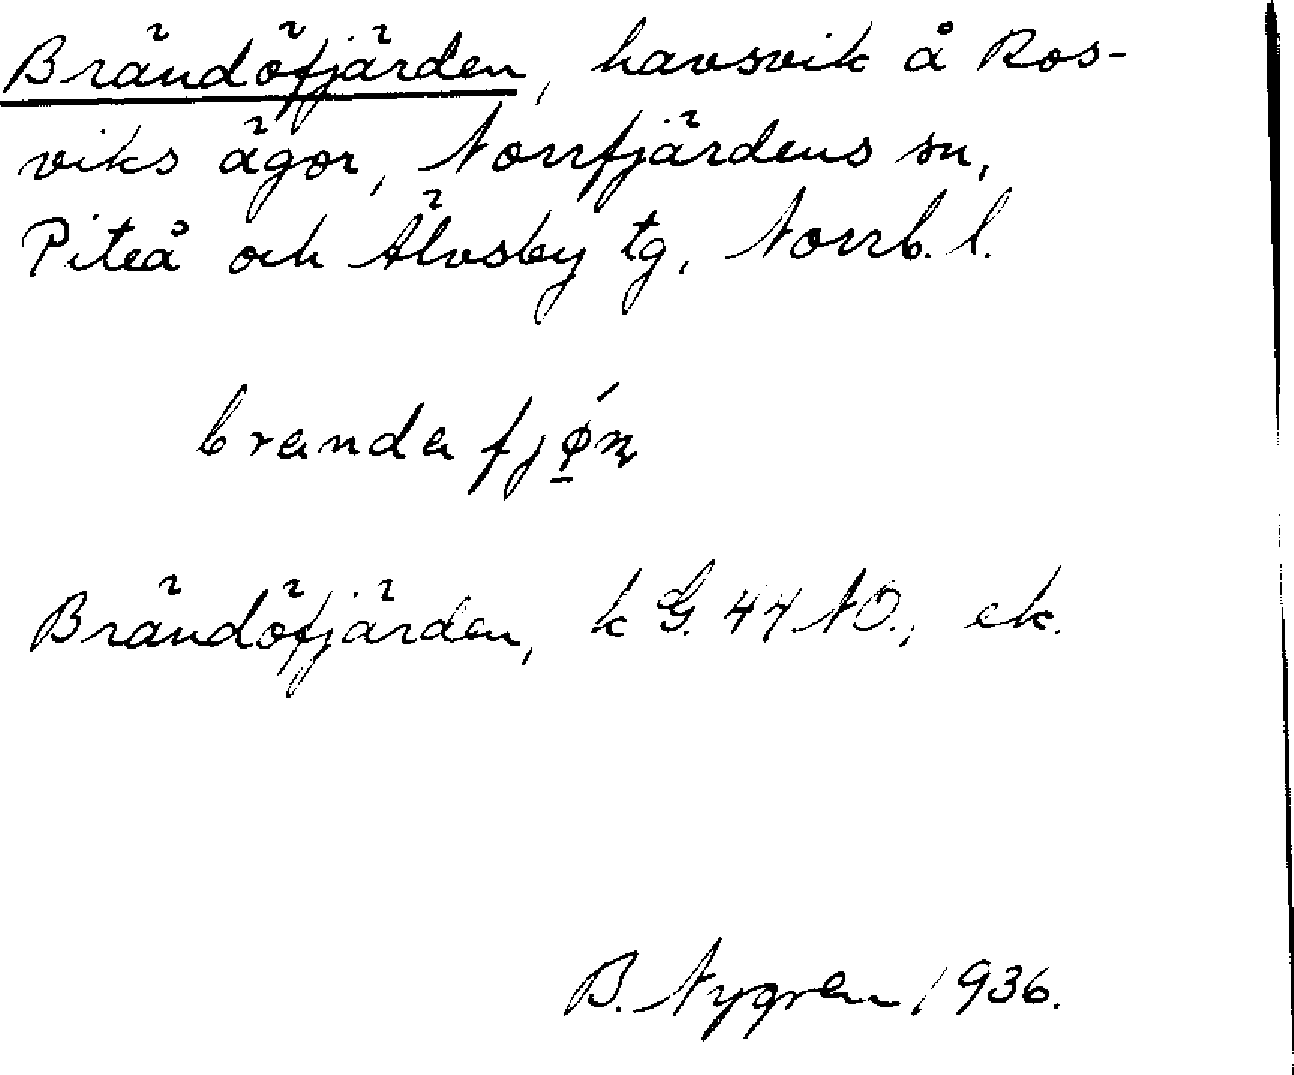 Brändöfjärden, havsvik å Ros-
viks ägor, Norrfjärdens sn,
Piteå och Älvsby tg, Norrb. l.
brandafjǿ̲ɳ
Brändöfjärden, k G. 44 NO., ek.
B. Nygren 1936.